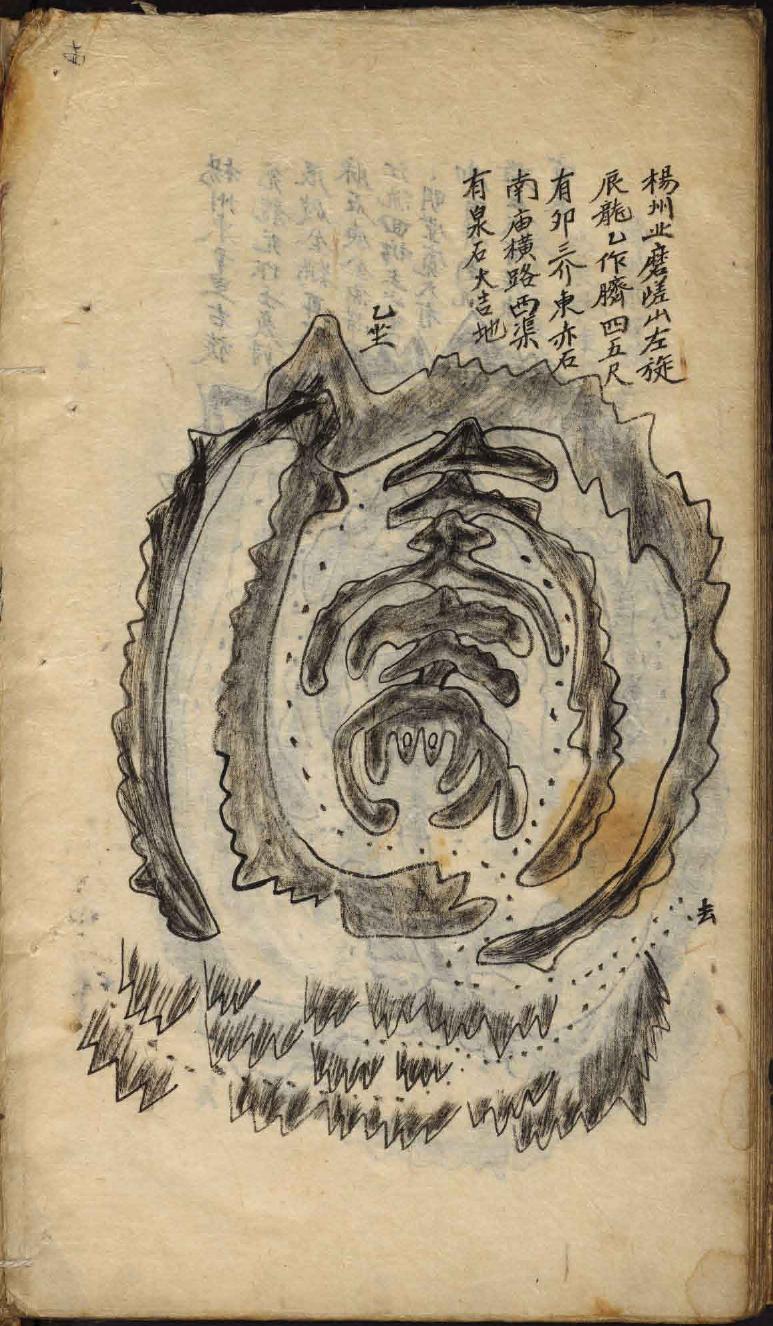 楊州北磨嵯山左旋
辰龍乙作臍四五尺
有卯三介東赤石
南庙橫路西渠
有泉石大吉地
乙坐
去